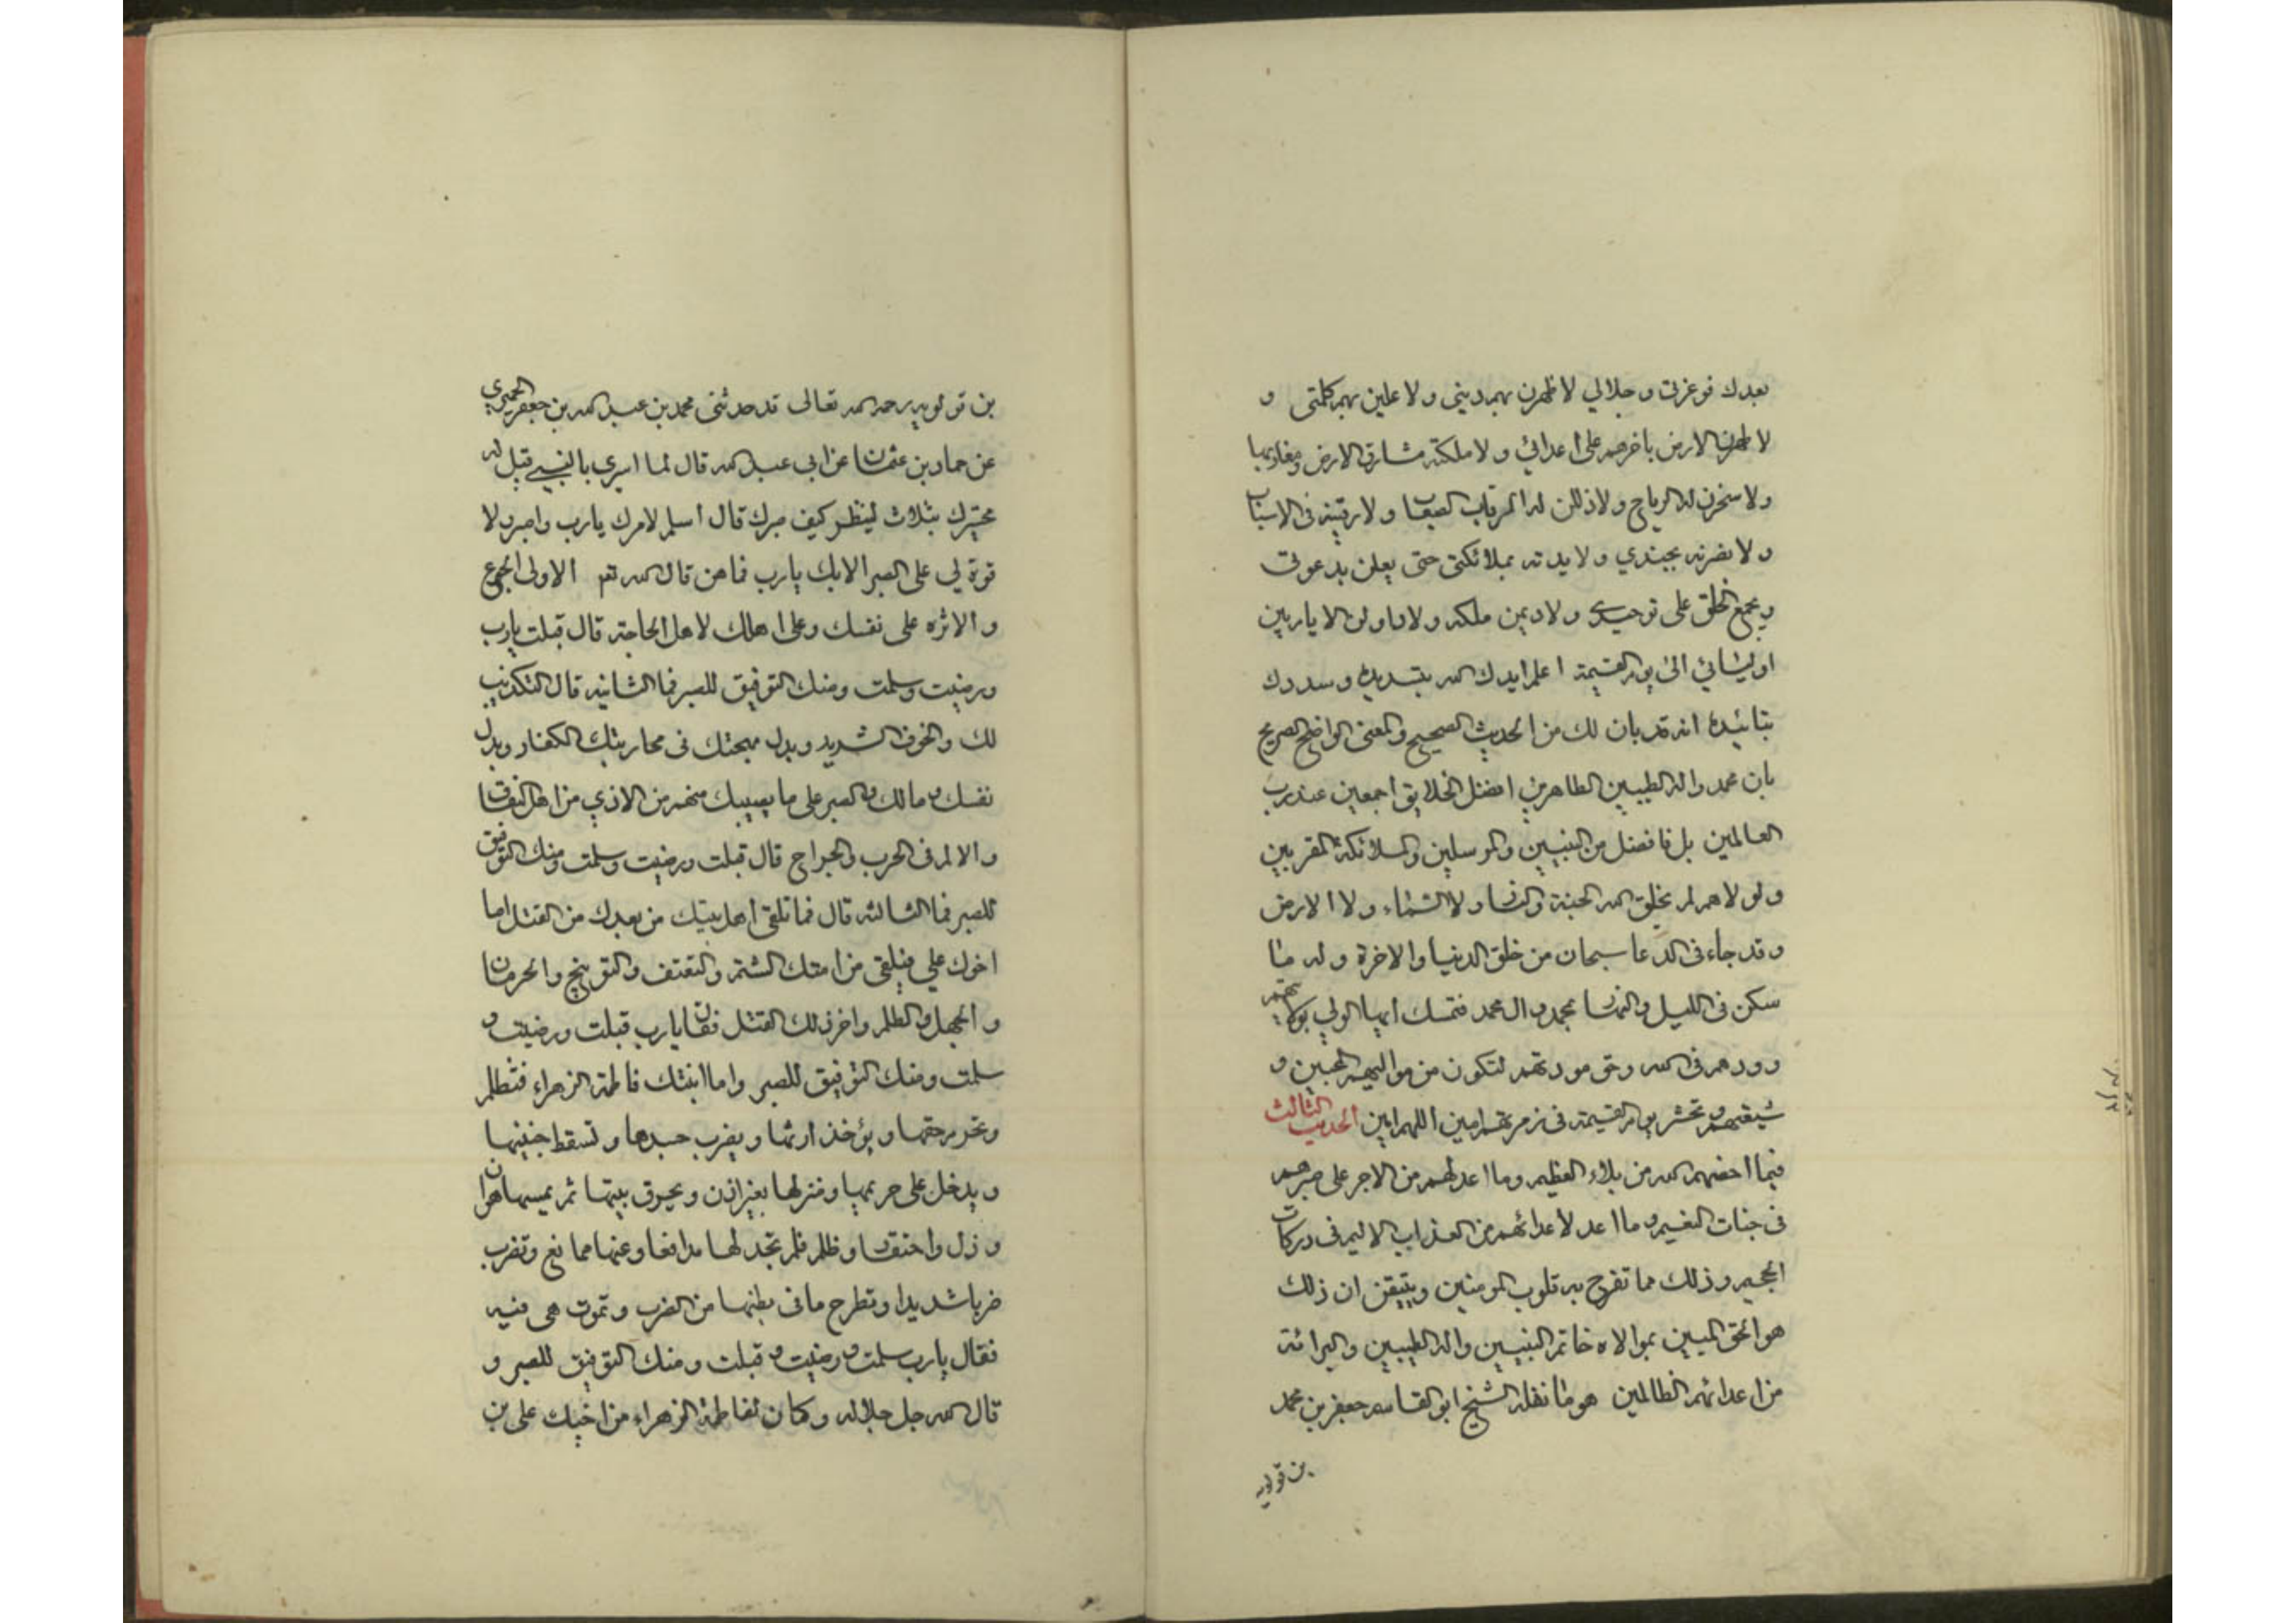 بعدك فوعزتي وجلالي لاظهرن بهم ديني ولاعلين بهم كلمتي و
لاطهرن الارض باخرهم على اعدائي ولاملكنه مشارق الارض ومغاربها
ولاسخرن له الرياح ولاذللن له الرقاب الصعاب ولارقينه في الاسباب
ولانصرنه بجندي ولايدنه بملائكتي حتى يعلن بدعوتي
ويجمع الخلق على توحيدي ولاديمن ملكه ولاداولن الايام بين
اوليائي الى يوم القيمة اعلم ايدك الله بتسديده وسددك
بتائيده انه قد بان لك من الحديث الصحيح والمعنى الواضح الصريح
بان محمد واله الطيبين الطاهرين افضل الخلايق اجمعين عند رب
العالمين بل فافضل من النبيين والمرسلين والملائكة المقربين
ولولاهم لم يخلق الله الجنة والنار ولا السماء ولا الارض
وقد جاء في الدعا سبحان من خلق الدنيا والاخرة وله ما
سكن في الليل والنهار بمحمد وال محمد فتمسك ايها الولي بولايتهم
وودهم في الله وحق مودتهم لتكون من مواليهم المحبين و
شيعتهم وتحشر يوم القيمة في زمرتهم امين اللهم امين الحديث الثالث
فيما اخصهم الله من بلاء العظيم وما اعد لهم من الاجر على صبرهم
في جنات النعيم وما اعد لاعدائهم من العذاب الاليم في دركات
الجحيم وذلك مما تفرح به قلوب المومنين ويتيقن ان ذلك
هو الحق المبين بموالاه خاتم النبيين واله الطيبين والبرائة
من اعدائهم الظالمين هو ما نقله الشيخ ابو القاسم جعفر بن محمد
بن قولويه
بن قولويه رحمه الله تعالى قد حدثني محمد بن عبد الله بن جعفر الحميري
عن حماد بن عثمان عن ابي عبد الله قال لما اسري بالنبي قيل له
مختبرك بثلاث لينظر كيف صبرك قال اسلم لامرك يارب واصبر ولا
قوة لي على الصبر الا بك يارب فما هن قال الله نعم الاولى الجوع
والاثره على نفسك وعلى اهلك لاهل الحاجة قال قبلت يارب
ورضيت وسلمت ومنك التوفيق للصبر فما الثانيه قال التكذيب
لك والخوف الشديد وبذل مهجتك في محاربتك الكفار وبذل
نفسك ومالك والصبر على ما يصيبك منهم من الاذي من اهل النفاق
والالم في الحرب والجراح قال قبلت ورضيت وسلمت ومنك التوفيق
للصبر فما الثالثه قال فما تلقى اهل بيتك من بعدك من القتل اما
اخوك علي فيلقى من امتك الشتم والتعنف والتوبيخ والحرمان
والجهل والظلم واخر ذلك القتل فقال يارب قبلت ورضيت و
سلمت ومنك التوفيق للصبر واما ابنتك فاطمة الزهراء فتظلم
وتحرم حقها ويؤخذ ارثها ويضرب جسدها وتسقط جنينها
ويدخل على حريمها ومنزلها بغير اذن ويحرق بيتها ثم يمسها هوان
وذل واحتقار وظلم فلم تجد لها مدافعا وعنها ممانع وتضرب
ضربا شديدا وتطرح ما في بطنها من الضرب وتموت هي فيه
فقال يارب سلمت ورضيت وقبلت ومنك التوفيق للصبر و
قال الله جل جلاله وكان لفاطمة الزهراء من اخيك علي بن